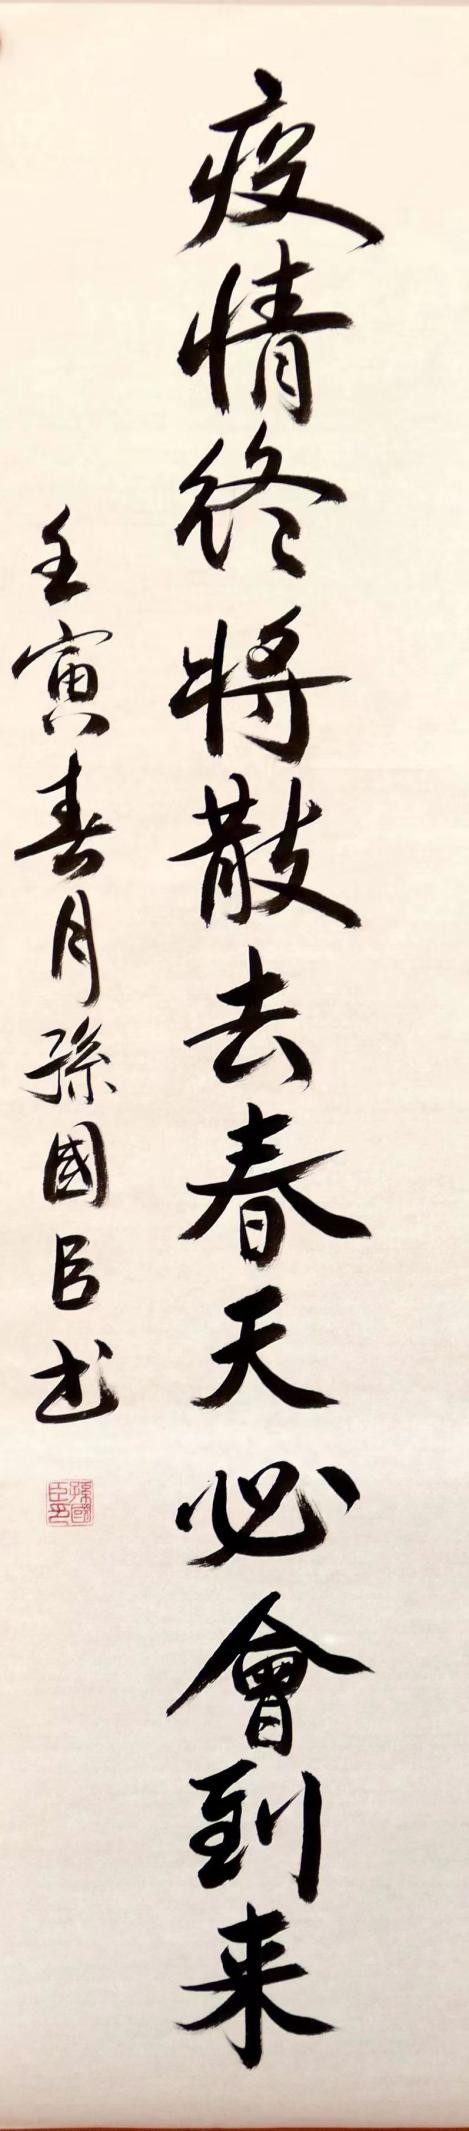 疫情终将散去春天必會到来
壬寅春月孫國臣书
孫國臣印